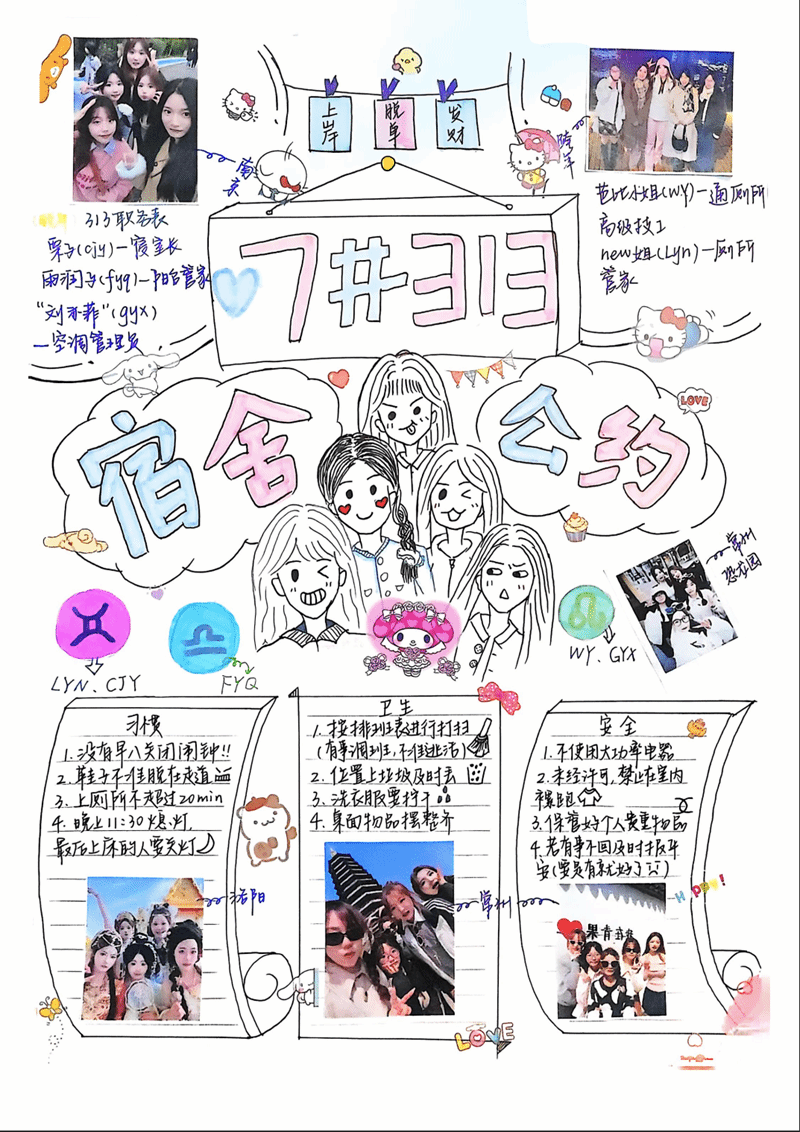 上岸
脱单
发财
南京
跨年
313职务表
栗子(cjy)—寝室长
雨润子(fyq)—阳台管家
“刘亦菲”(gyx)
—空调管理员
芭比小姐(WY)—通厕所
高级技工
new姐(Lyn)—厕所
管家
7#313
宿舍
公约
LOVE
常州
恐龙园
LYN、CJY
FYQ
WY、GYX
习惯
1.没有早八关闭闹钟!!
2.鞋子不准脱在走道
3.上厕所不超过20min
4.晚上11:30熄灯,
最后上床的人要关灯
洛阳
卫生
1.按排班表进行打扫
(有事调班,不准逃活)
2.位置上垃圾及时丢
3.洗衣服要拧干
4.桌面物品摆整齐
常州
LOVE
安全
1.不使用大功率电器
2.未经许可,禁止在室内
裸跑
3.保管好个人贵重物品
4.若有事不回及时报平
安(要是有就好了)
HAPPY!